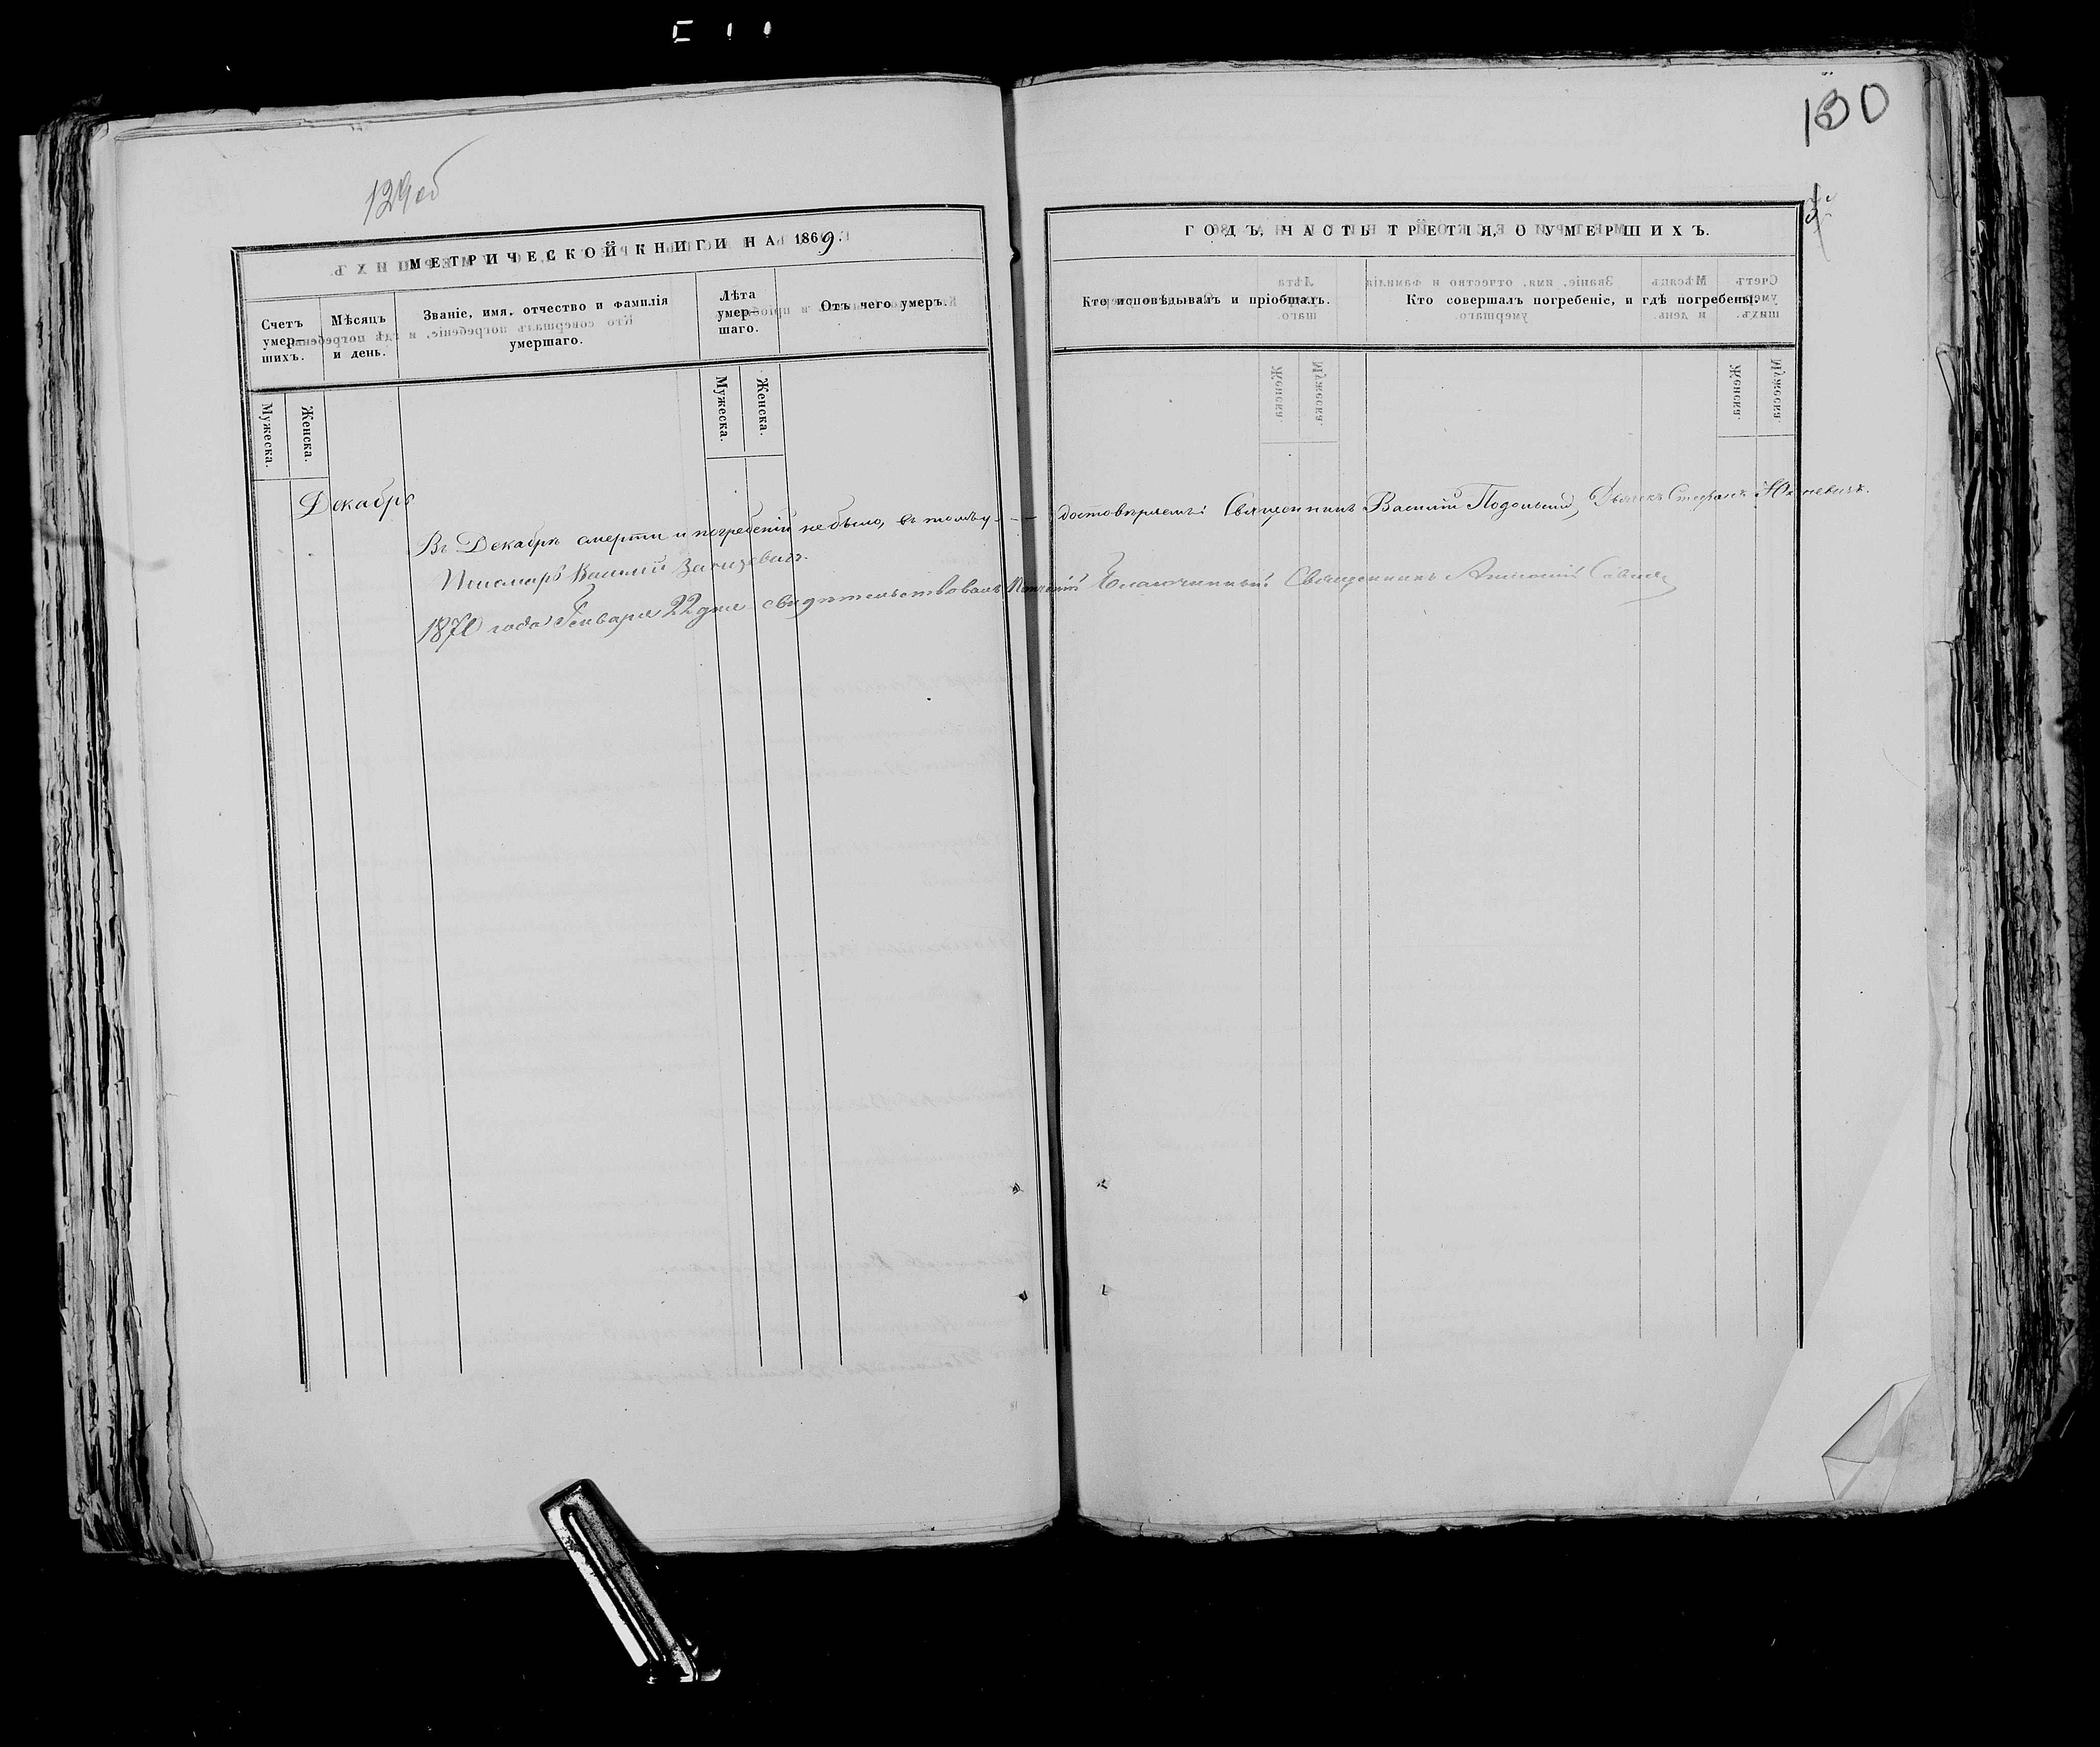 129об
130
МЕТРИЧЕСКОЙ КНИГИ НА 1869.
ГОДЪ, ЧАСТЬ ТРЕТІЯ, О УМЕРШИХЪ.
Счетъ умер-шихъ.
Мѣсяцъ и день.
Званіе, имя, отчество и фамилія умершаго.
Лѣта умер-шаго.
Отъ чего умеръ.
Кто исповѣдывалъ и пріобщалъ.
Кто совершалъ погребеніе, и гдѣ погребены.
Мужеска.
Женска.
Мужеска.
Женска.
Декабрь
Въ Декабрѣ смерти и погребеній не было, въ томъ удостовѣряемъ: Священникъ Василій Подольскій, Дьячекъ Стефанъ
Пономарь Василій
1870 года Генваря 22 дня свидѣтельствовалъ Благочинный Священникъ Антоній